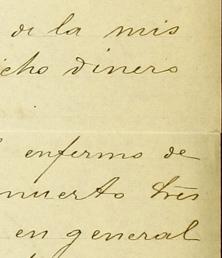 de la mis
icho dinero
enfermo de
muerto tres
en general